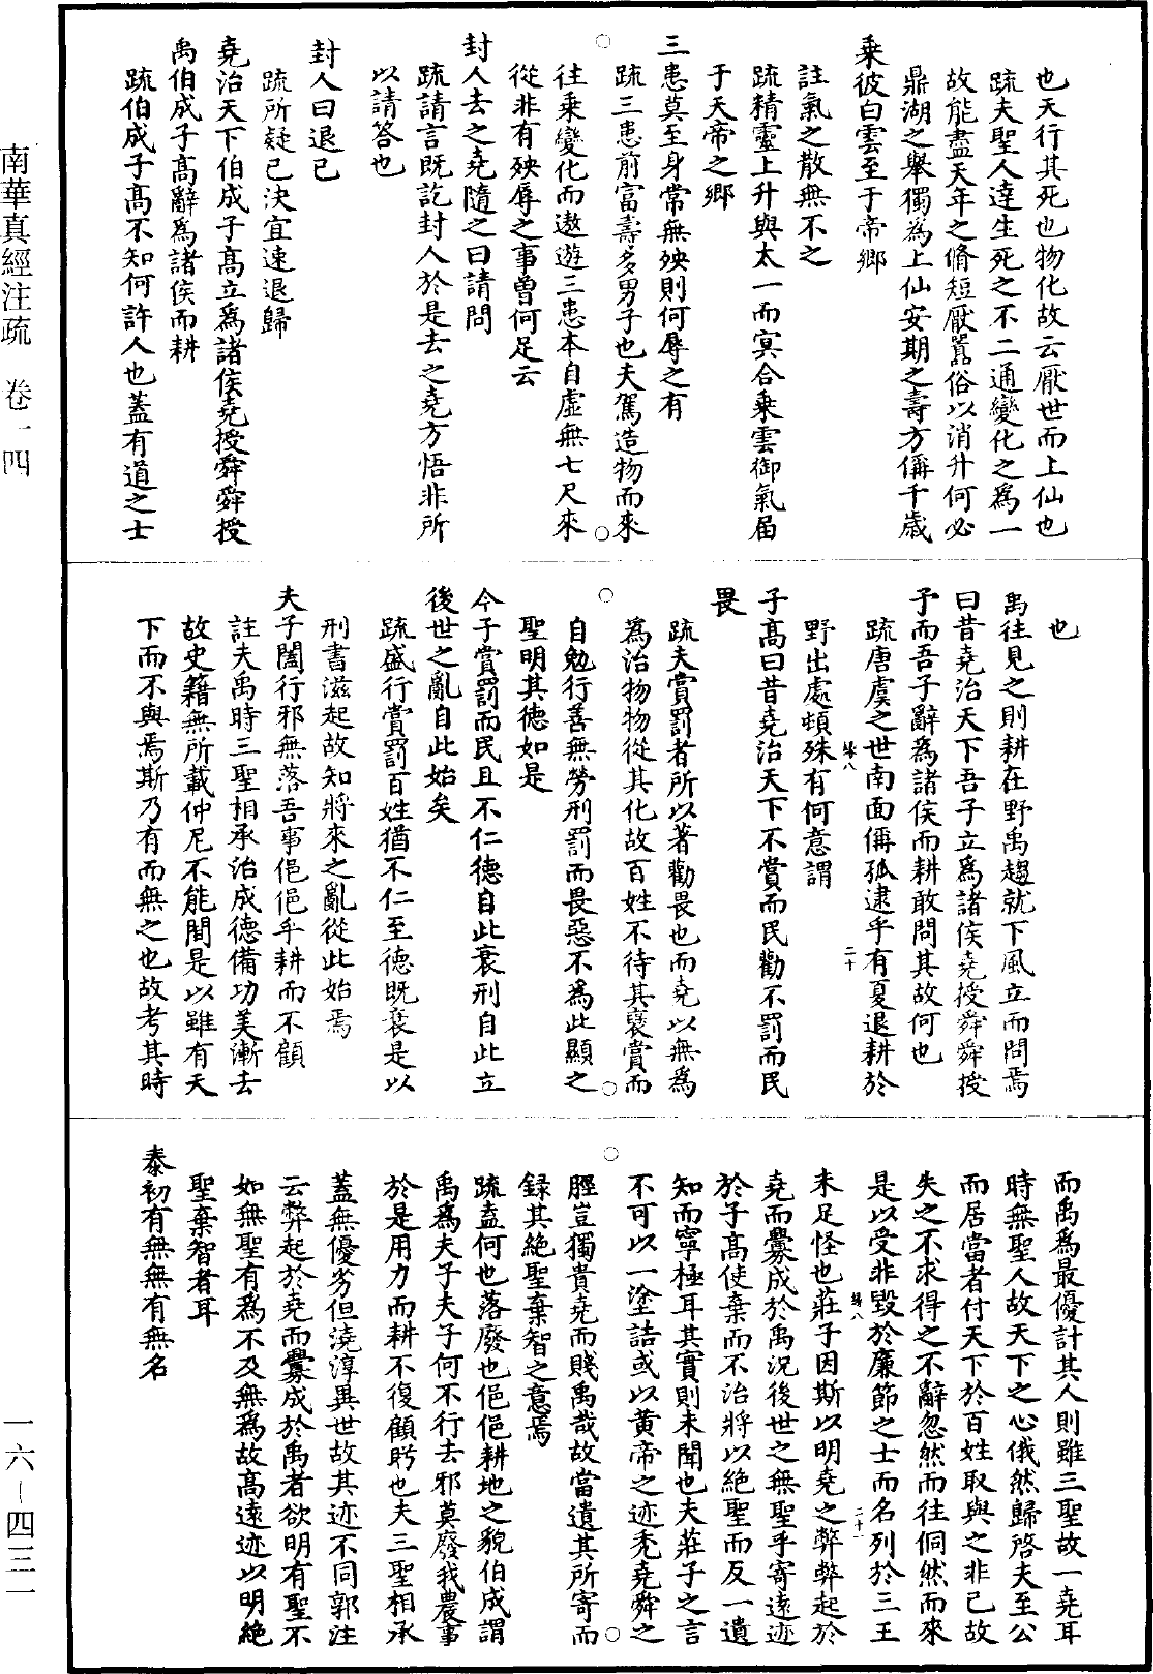 也天行其死也物化故云厭世而上仙也
疏夫聖人達生死之不二通變化之爲一
故能盡天年之脩短厭囂俗以消升何必
鼎湖之舉獨為上仙安期之壽方偁千歲
乘彼白雲至于帝鄉
註氣之散無不之
疏精靈上升與太一而冥合乗雲御氣届
于天帝之鄉
三患莫至身常無殃則何辱之有
疏三患前富壽多男子也夫駕造物而來
往乘變化而遨遊三患本自虛無七尺來
從非有殃辱之事曽何足云
封人去之堯隨之曰請問
疏請言既訖封人於是去之堯方悟非所
以請答也
封人曰退已
疏所疑已決宜速退歸
堯治天下伯成子髙立爲諸侯堯授舜舜授
禹伯成子髙辭爲諸侯而耕
疏伯成子髙不知何許人也蓋有道之士
也
禹往見之則耕在野禹趨就下風立而問焉
曰昔堯治天下吾子立爲諸侯堯授舜舜授
予而吾子辭爲諸侯而耕敢問其故何也
疏唐虞之世南面偁孤逮乎有夏退耕於
野出處頓殊有何意謂
子髙曰昔堯治天下不賞而民勸不罰而民
畏
疏夫賞罰者所以著勸畏也而堯以無爲
為治物物從其化故百姓不待其襃賞而
自勉行善無勞刑罰而畏惡不為此顯之
聖明其德如是
今子賞罰而民且不仁德自此衰刑自此立
後世之亂自此始矣
疏盛行賞罰百姓猶不仁至德既衰是以
刑書滋起故知將來之亂從此始焉
夫子闔行邪無落吾事俋俋乎耕而不顧
註夫禹時三聖相承治成德備功美漸去
故史籍無所載仲尼不能閒是以雖有天
下而不與焉斯乃有而無之也故考其時
而禹爲最優計其人則雖三聖故一堯耳
時無聖人故天下之心俄然歸啓夫至公
而居當者付天下於百姓取與之非己故
失之不求得之不辭忽然而往侗然而來
是以受非毀於廉節之士而名列於三王
未足怪也莊子因斯以明堯之弊弊起於
堯而釁成於禹況後世之無聖乎寄遠迹
於子髙使棄而不治將以絶聖而反一遺
知而寧極耳其實則未聞也夫莊子之言
不可以一塗詰或以黄帝之迹秃堯舜之
脛豈獨貴堯而賤禹哉故當遺其所寄而
録其絶聖棄智之意焉
疏盍何也落廢也俋俋耕地之貌伯成謂
禹爲夫子夫子何不行去邪莫廢我農事
於是用力而耕不復顧盻也夫三聖相承
蓋無優劣但澆淳異世故其迹不同郭注
云弊起於堯而釁成於禹者欲明有聖不
如無聖有爲不及無爲故髙遠迹以明絶
聖棄智者耳
泰初有無無有無名
南華真經注疏　卷一四
一六－四三一
二十
二十一